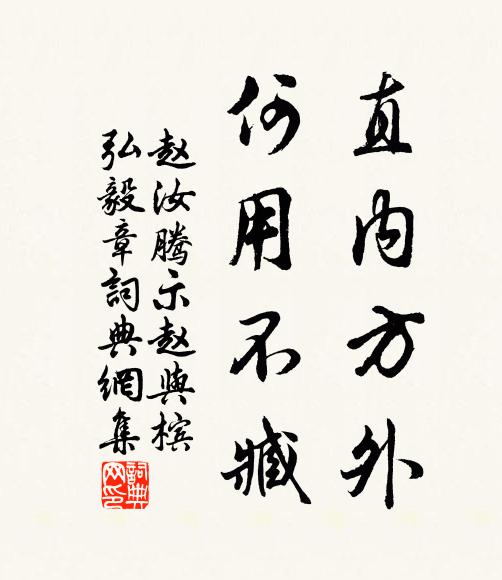 直内方外
何用不臧
赵汝腾示赵與槟
弘毅章詞典網集
詞典網印